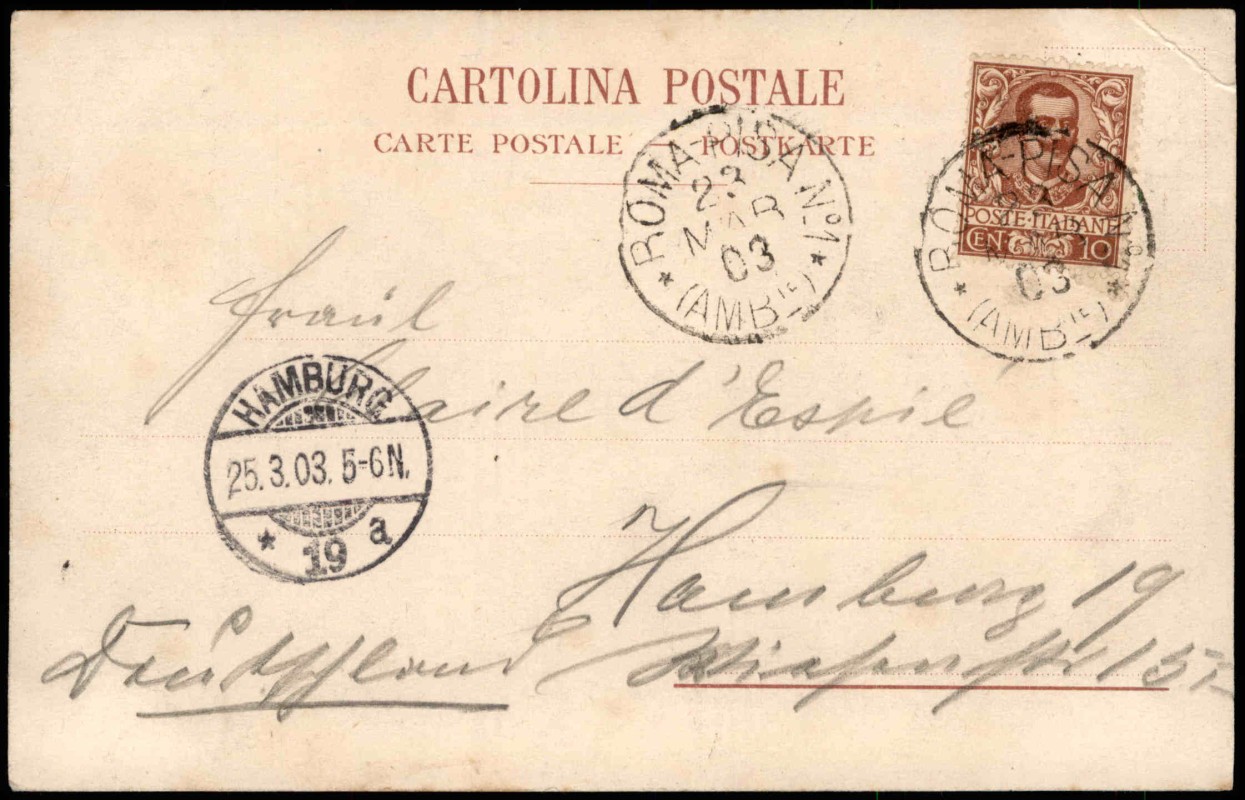 CARTOLINA POSTALE
CARTE POSTALE — POSTKARTE
ROMA-PISA N°1
23
MAR
03
*(AMB^TE)*
ROMA-PISA N°1
MAR
03
*(AMB^TE)*
POSTE·ITALIANE
CEN 10
Fräul
Claire d'Espie
HAMBURG
25.3.03. 5-6N.
* 19 a
Hamburg 19
Deutschland
15